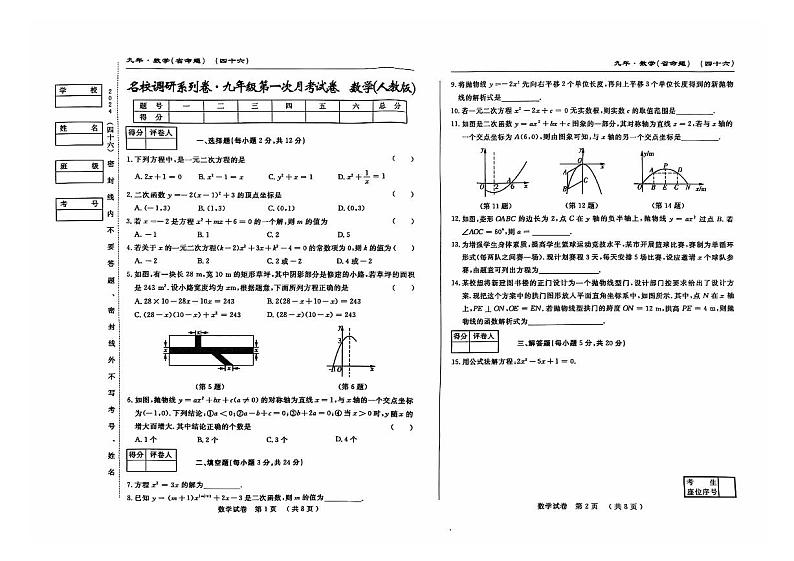 九年·数学(省命题) (四十六)
名校调研系列卷·九年级第一次月考试卷 数学(人教版)
题 号 一 二 三 四 五 六 总 分
得 分
得分 评卷人
一、选择题(每小题 2 分,共 12 分)
1. 下列方程中,是一元二次方程的是 ( )
A. 2x+1=0 B. x²-1=x C. y²+x=1 D. x²+1/x=1
2. 二次函数 y=-2(x-1)²+3 的顶点坐标是 ( )
A. (-1,3) B. (1,3) C. (0,1) D. (0,3)
3. 若 x=-2 是方程 x²+mx+6=0 的一个解,则 m 的值为 ( )
A. -1 B. 1 C. 2 D. 5
4. 若关于 x 的一元二次方程(k-2)x²+3x+k²-4=0 的常数项为 0,则 k 的值为( )
A. -2 B. 2 C. 2 或 -2 D. 4 或 -2
5. 如图,有一块长 28 m,宽 10 m 的矩形草坪,其中阴影部分是修定的小路,若草坪的面积
是 243 m². 设小路宽度均为 xm,根据题意,下面所列方程正确的是 ( )
A. 28×10-28x-10x=243 B. 2(28-x+10-x)=243
C. (28-x)(10-x)+x²=243 D. (28-x)(10-x)=243
(第 5 题) (第 6 题)
6. 如图,抛物线 y=ax²+bx+c(a≠0) 的对称轴为直线 x=1,与 x 轴的一个交点坐标
为(-1,0). 下列结论:①a<0;②a-b+c=0;③b+2a=0;④当 x>0 时,y 随 x 的
增大而增大. 其中结论正确的个数是 ( )
A. 1 个 B. 2 个 C. 3 个 D. 4 个
得分 评卷人
二、填空题(每小题 3 分,共 24 分)
7. 方程 x²=3x 的解为
8. 已知 y=(m+1)x^{|m|+1}+2x-3 是二次函数,则 m 的值为
数学试卷 第 1 页 (共 8 页)
学 校
姓 名
班 级
考 号
2024
(四十六)
密封线内不要答题、密封线外不写考号、姓名
九年·数学(省命题) (四十六)
9. 将抛物线 y=-2x² 先向右平移 2 个单位长度,再向上平移 3 个单位长度得到的新抛物
线的解析式是 .
10. 若一元二次方程 x²-2x+c=0 无实数根,则实数 c 的取值范围是 .
11. 如图是二次函数 y=ax²+bx+c 图象的一部分,其对称轴为直线 x=2,若与 x 轴的
一个交点坐标为 A(6,0),则由图象可知,与 x 轴的另一个交点坐标是 .
(第 11 题) (第 12 题) (第 14 题)
12. 如图,菱形 OABC 的边长为 2,点 C 在 y 轴的负半轴上,抛物线 y=ax² 过点 B. 若
∠AOC=60°,则 a= .
13. 为增强学生身体素质,提高学生篮球运动竞技水平,某市开展篮球比赛,赛制为单循环
形式(每两队之间赛一场). 现计划赛程 3 天,每天安排 5 场比赛,设应邀请 x 个球队参
赛,由题意可列出方程为 .
14. 某校想将新建图书楼的正门设计为一个抛物线型门,设计部门按要求给出了设计方
案. 现把这个方案中的拱门图形放入平面直角坐标系中,如图所示. 其中,点 N 在 x 轴
上,PE⊥ON,OE=EN. 若抛物线型拱门的跨度 ON=12 m,拱高 PE=4 m,则抛
物线的函数解析式为 .
得分 评卷人
三、解答题(每小题 5 分,共 20 分)
15. 用公式法解方程:2x²-5x+1=0.
考 生
座位序号
数学试卷 第 2 页 (共 8 页)